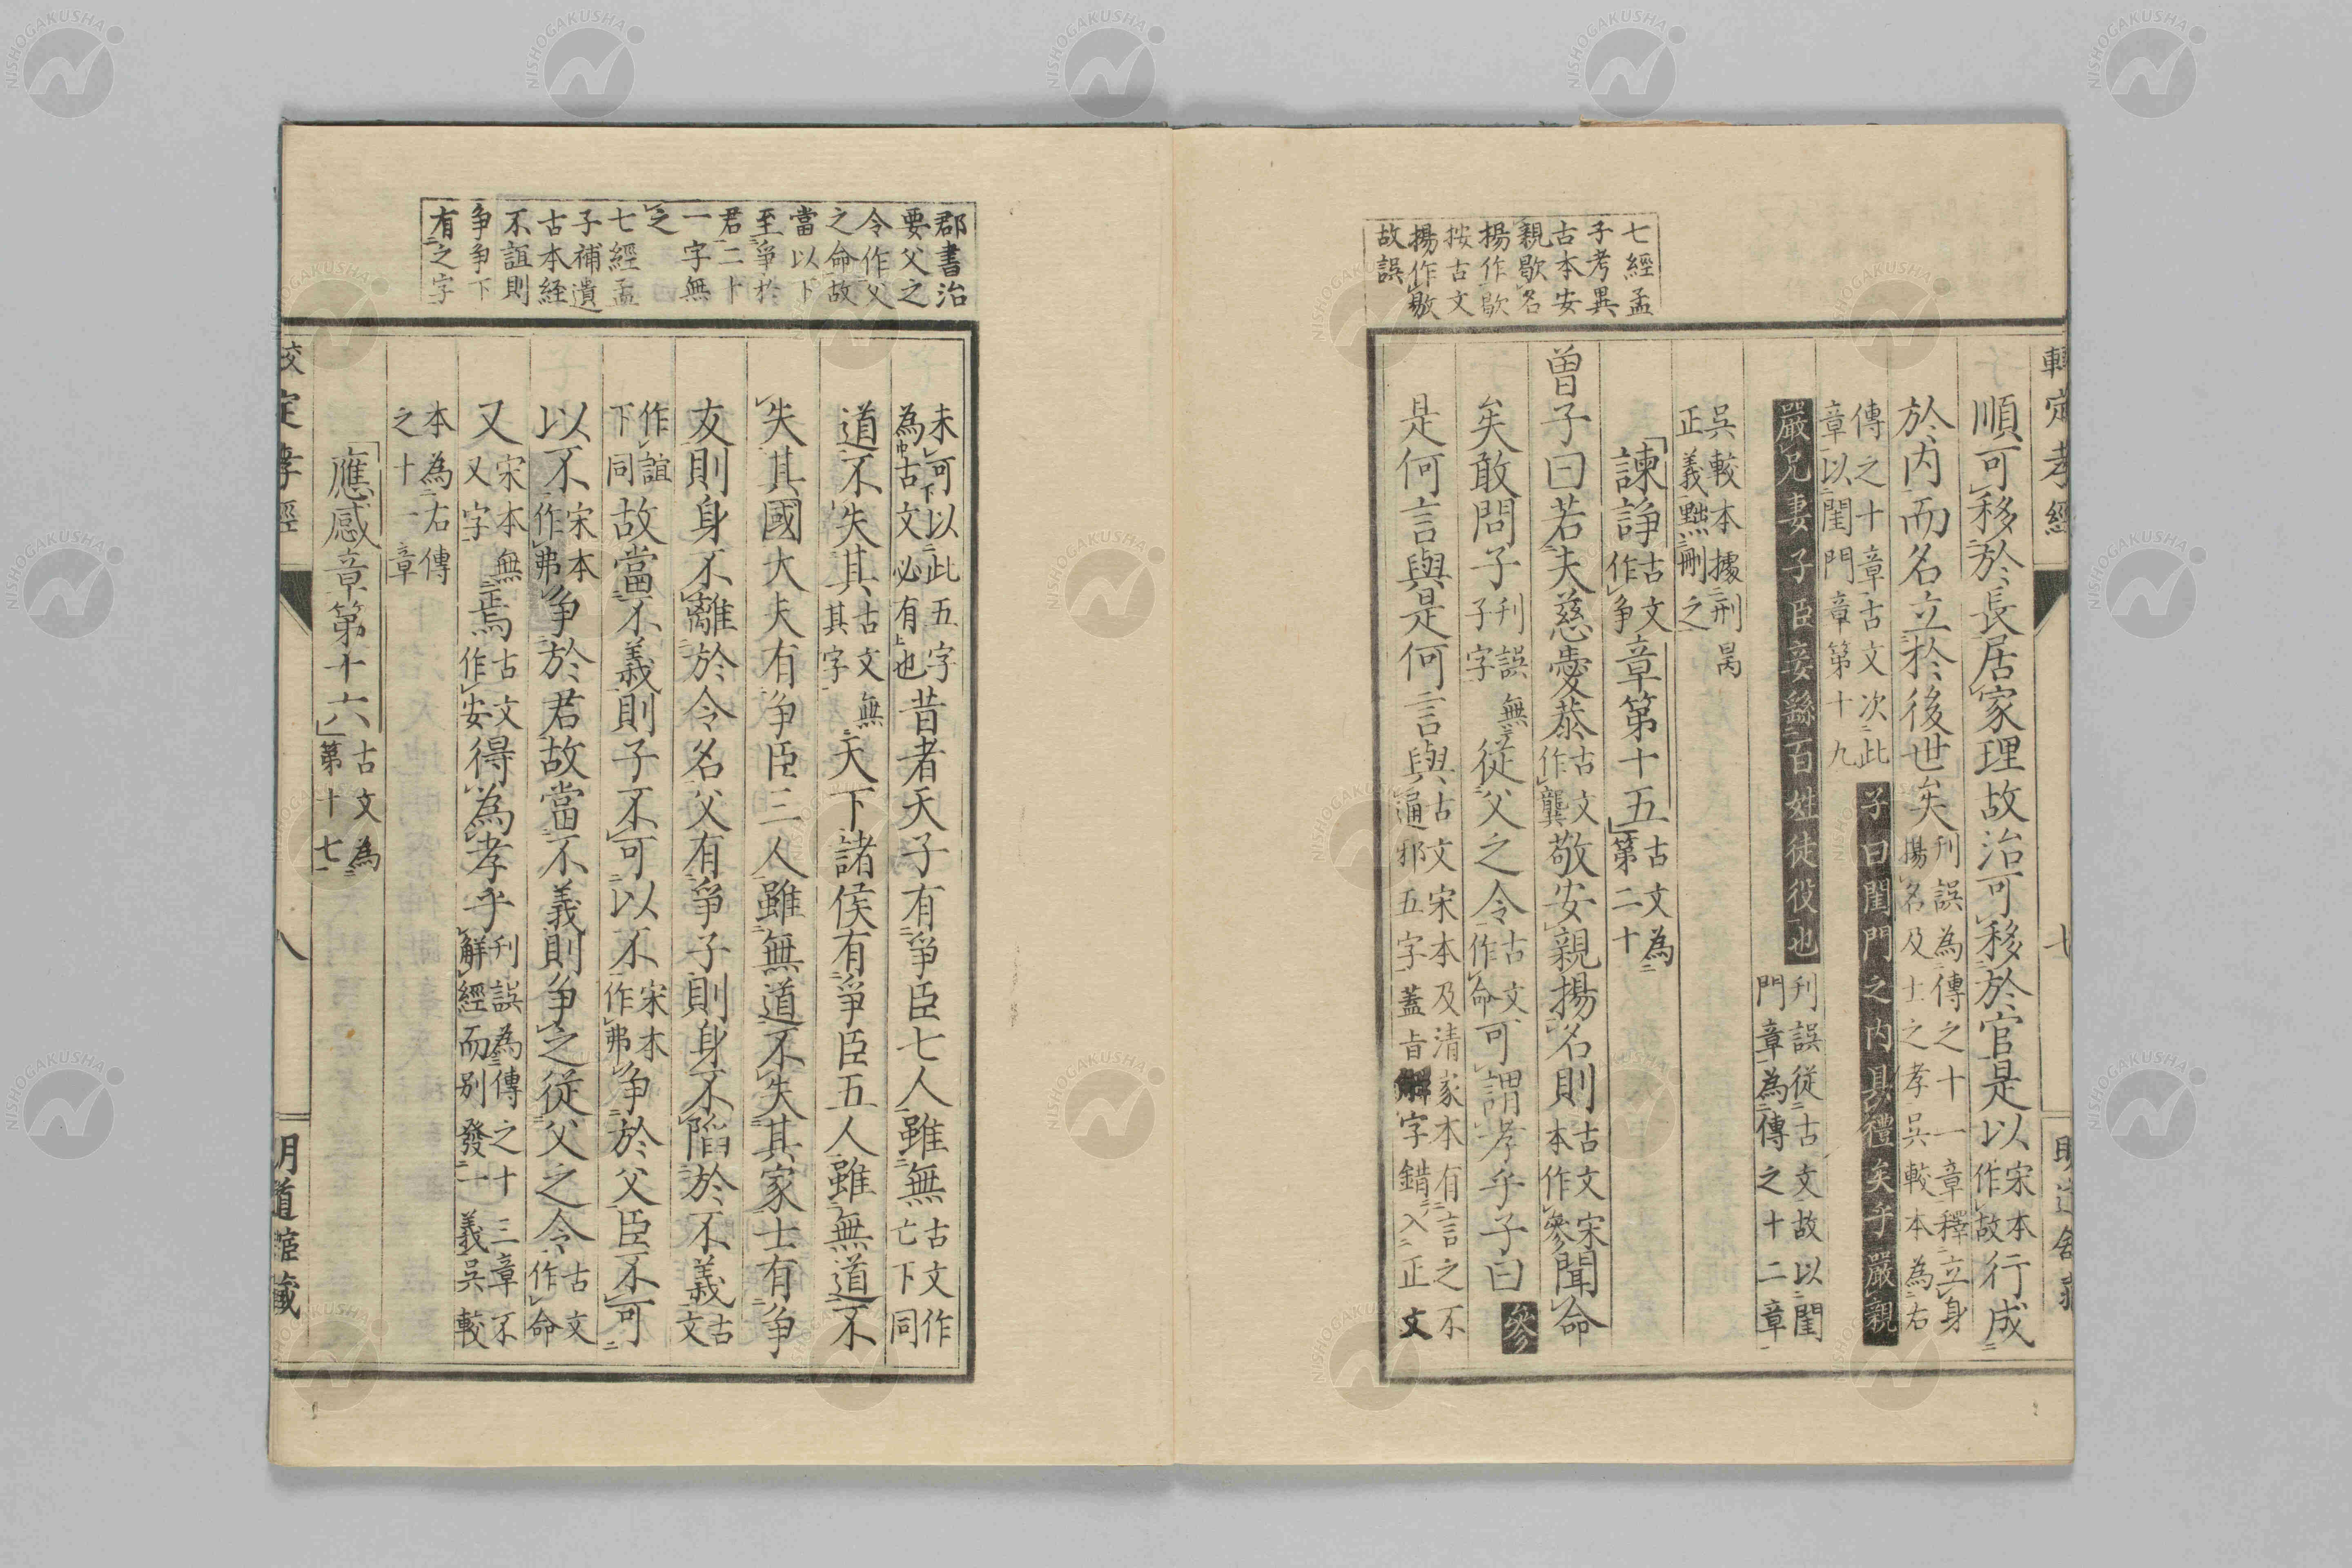 七經孟
子考異
古本安
親歇名
揚作歇
按古文
揚作敭
故誤
順可移於長居家理故治可移於官是以宋本作故行成
於內而名立於後世矣刊誤為傳之十一章釋立身揚名及士之孝吳較本為右
傳之十章古文次此章以閨門章第十九子曰閨門之內具禮矣乎嚴親
嚴兄妻子臣妾繇百姓徒役也刊誤從古文故以閨門章為傳之十二章
吳較本據刑昺正義黜刪之
諫諍古文作爭章第十五古文為第二十
曾子曰若夫慈愛恭古文作龔敬安親揚名則古文宋本作參聞命
矣敢問子刊誤無子字從父之令古文作命可謂孝乎子曰參
是何言與是何言與古文宋本及清家本有言之不通邪五字蓋旨解字錯入正文
七
郡書治
要父之
令作父
之命故
當以下
至爭於
君二十
一字無
之
七經孟
子補遺
古本經
不誼則
爭爭下
有之字
未可以此五字為古文必有也昔者天子有爭臣七人雖無古文作亡下同
道不失其古文無其字天下諸侯有爭臣五人雖無道不
失其國大夫有爭臣三人雖無道不失其家士有爭
友則身不離於令名父有爭子則身不陷於不義古文
作誼下同故當不義則子不可以不宋本作弗爭於父臣不可
以不宋本作弗爭於君故當不義則爭之從父之令古文作命
又宋本無又字焉古文作安得為孝乎刊誤為傳之十三章不解經而別發一義吳較
本為右傳之十一章
應感章第十六古文為第十七
校定孝經
八
明道館藏